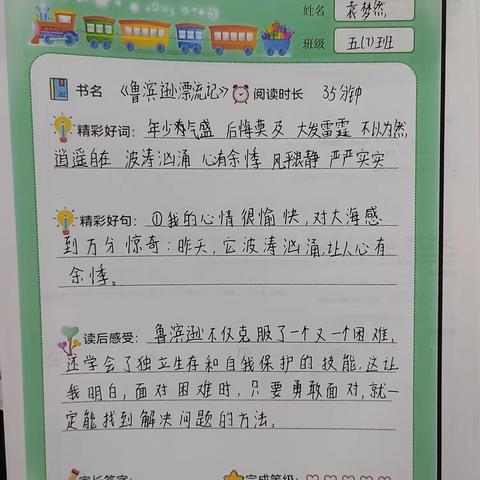 姓名 袁梦然
班级 五(7)班
书名 《鲁滨逊漂流记》 阅读时长 35分钟
精彩好词: 年少气盛 后悔莫及 大发雷霆 不以为然
逍遥自在 波涛汹涌 心有余悸 风平浪静 严严实实
精彩好句: ①我的心情很愉快,对大海感
到万分惊奇:昨天,它波涛汹涌,让人心有
余悸。
读后感受: 鲁滨逊不仅克服了一个又一个困难,
还学会了独立生存和自我保护的技能,这让
我明白,面对困难时,只要勇敢面对,就一
定能找到解决问题的方法。
家长签字: 完成等级: